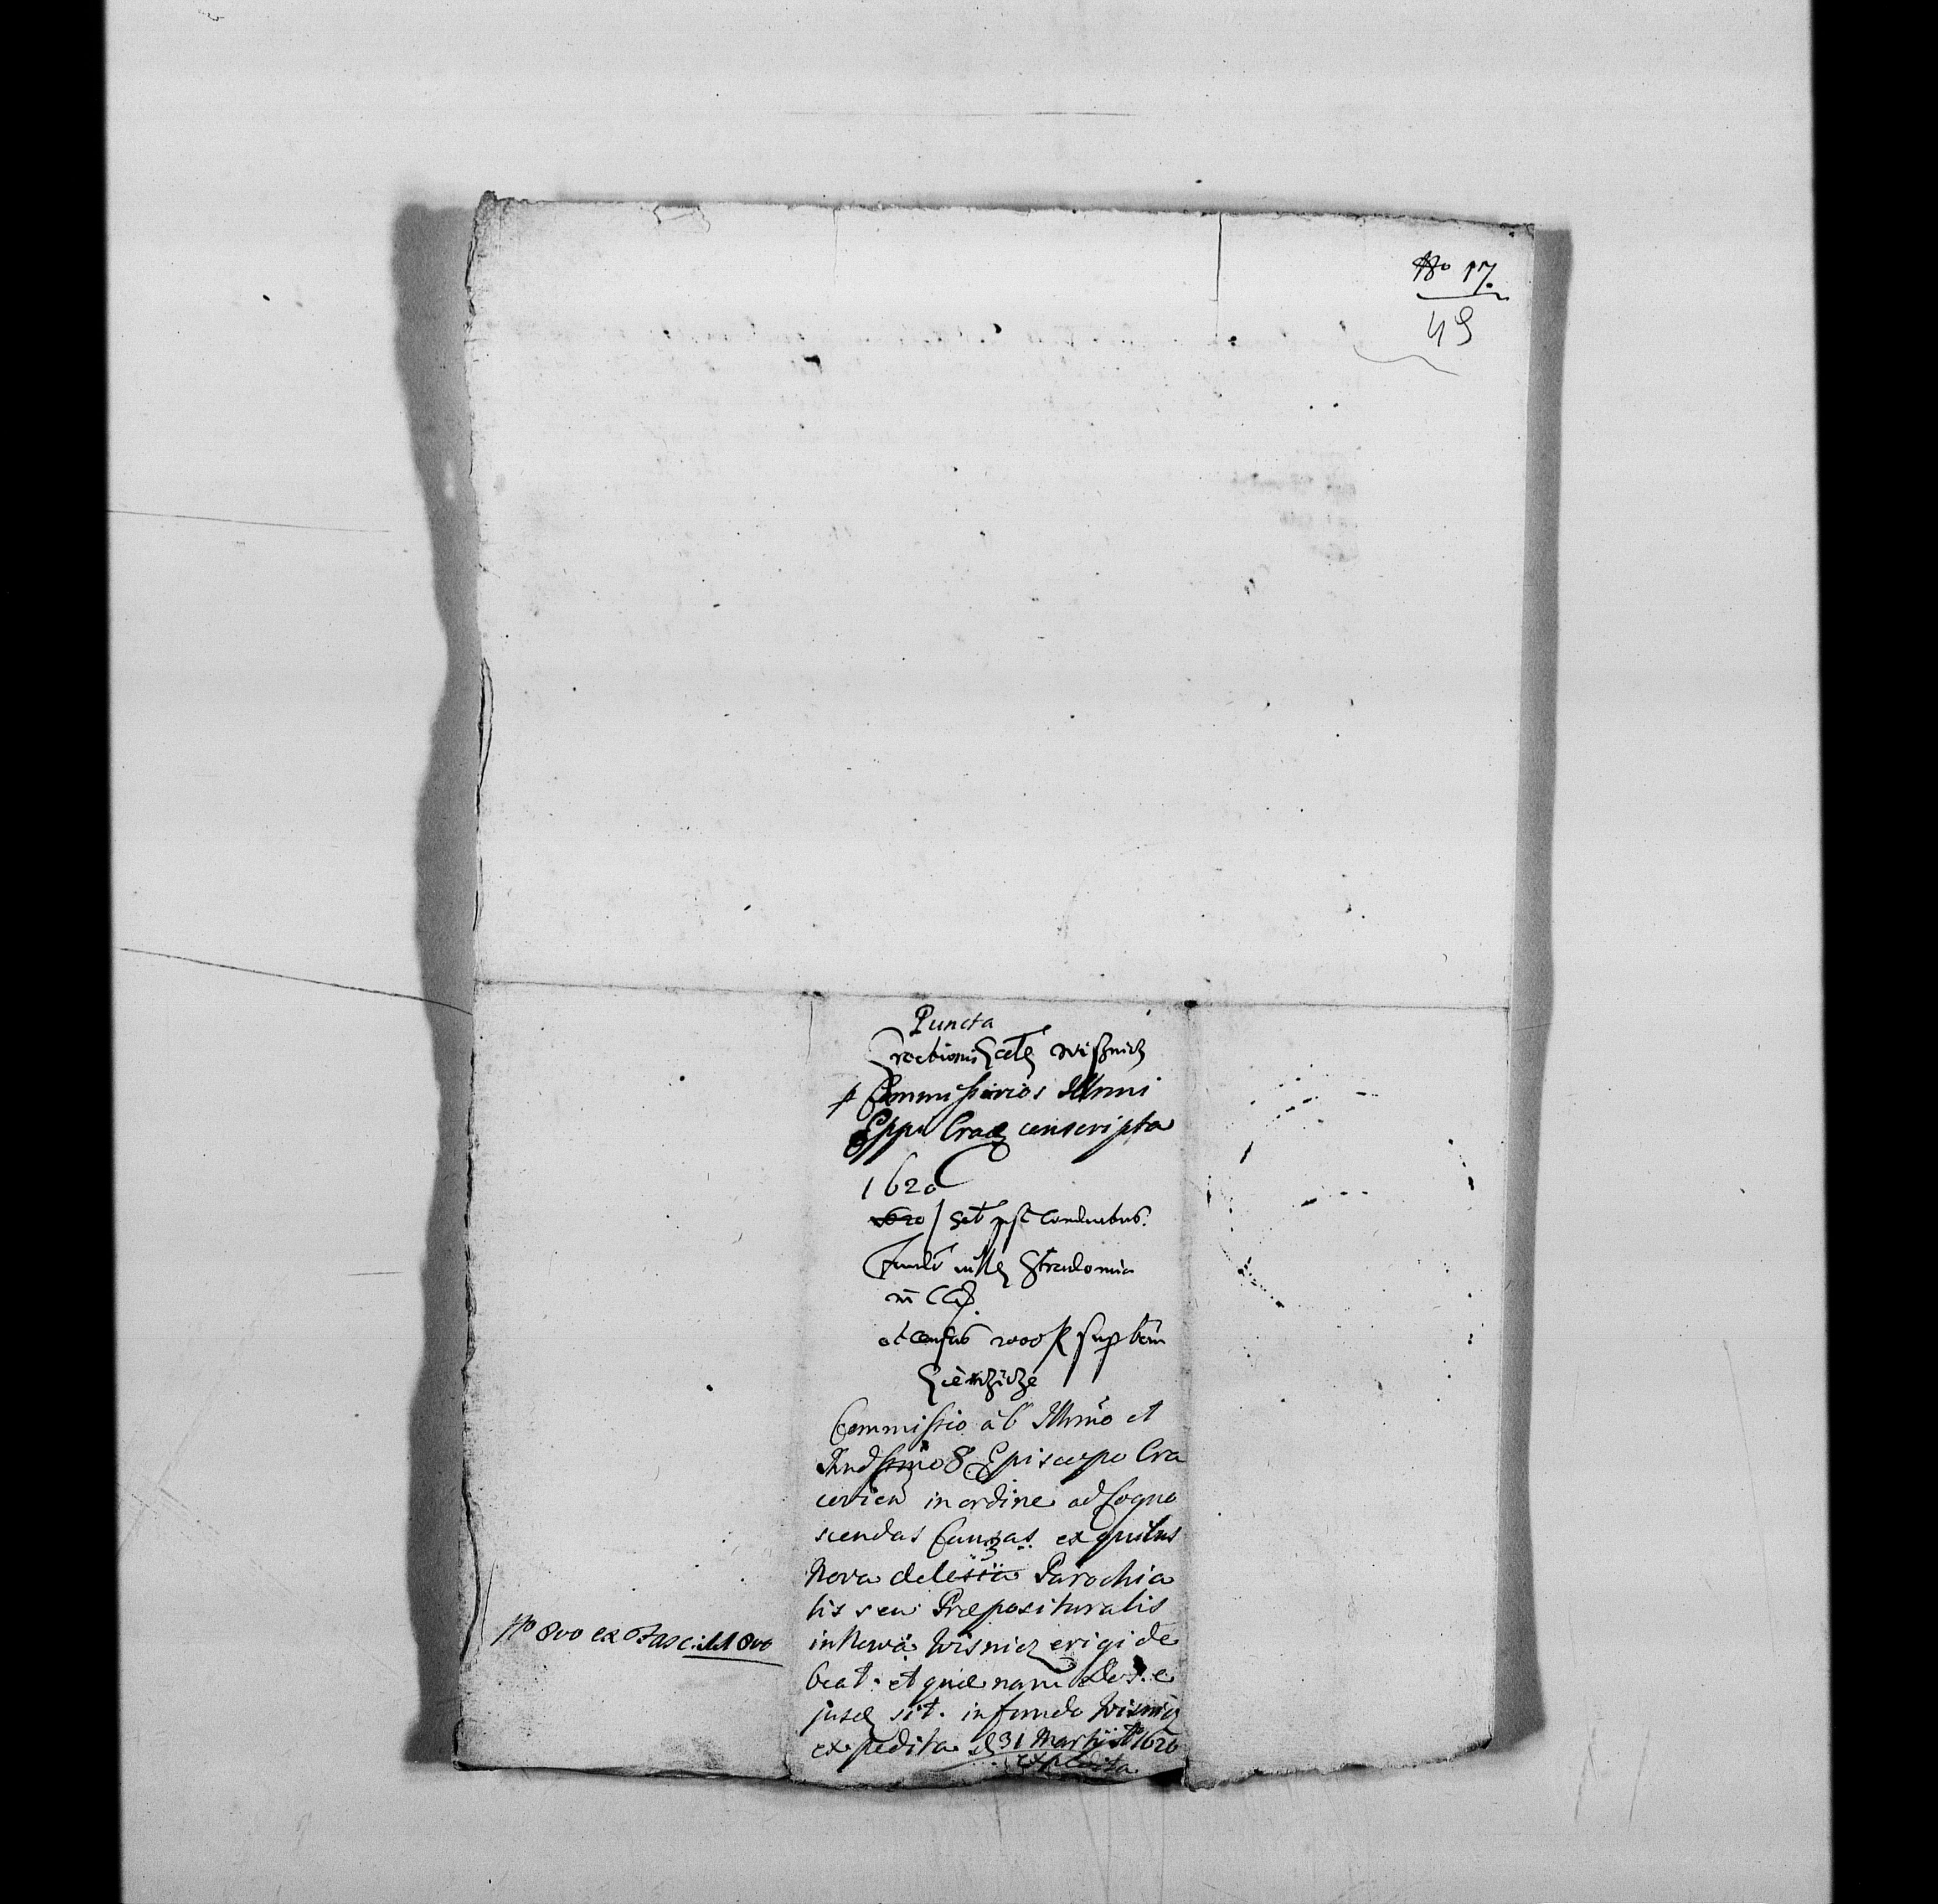 No 17.
49
Puncta
Erectionis Eccłę Wisznicz
p Commissarios Illmi
Eppi Crac conscripta
1620
1620 / Set
fundi villę Stradomia
et census 2000 sup bon
Commissio ab Illmo et
Rndssimo Episcopo Cra
covien in ordine ad Cogno
scendas Causas ex quibus
Nova Parochia
lis seu Præposituralis
in Nova Wisnicz erigi de
beat: et quænam Dos e
jusd sit. in fundo Wisnicz
expedita d 31 Martij Ao 1620
expedita
No 800 ex Fasc: